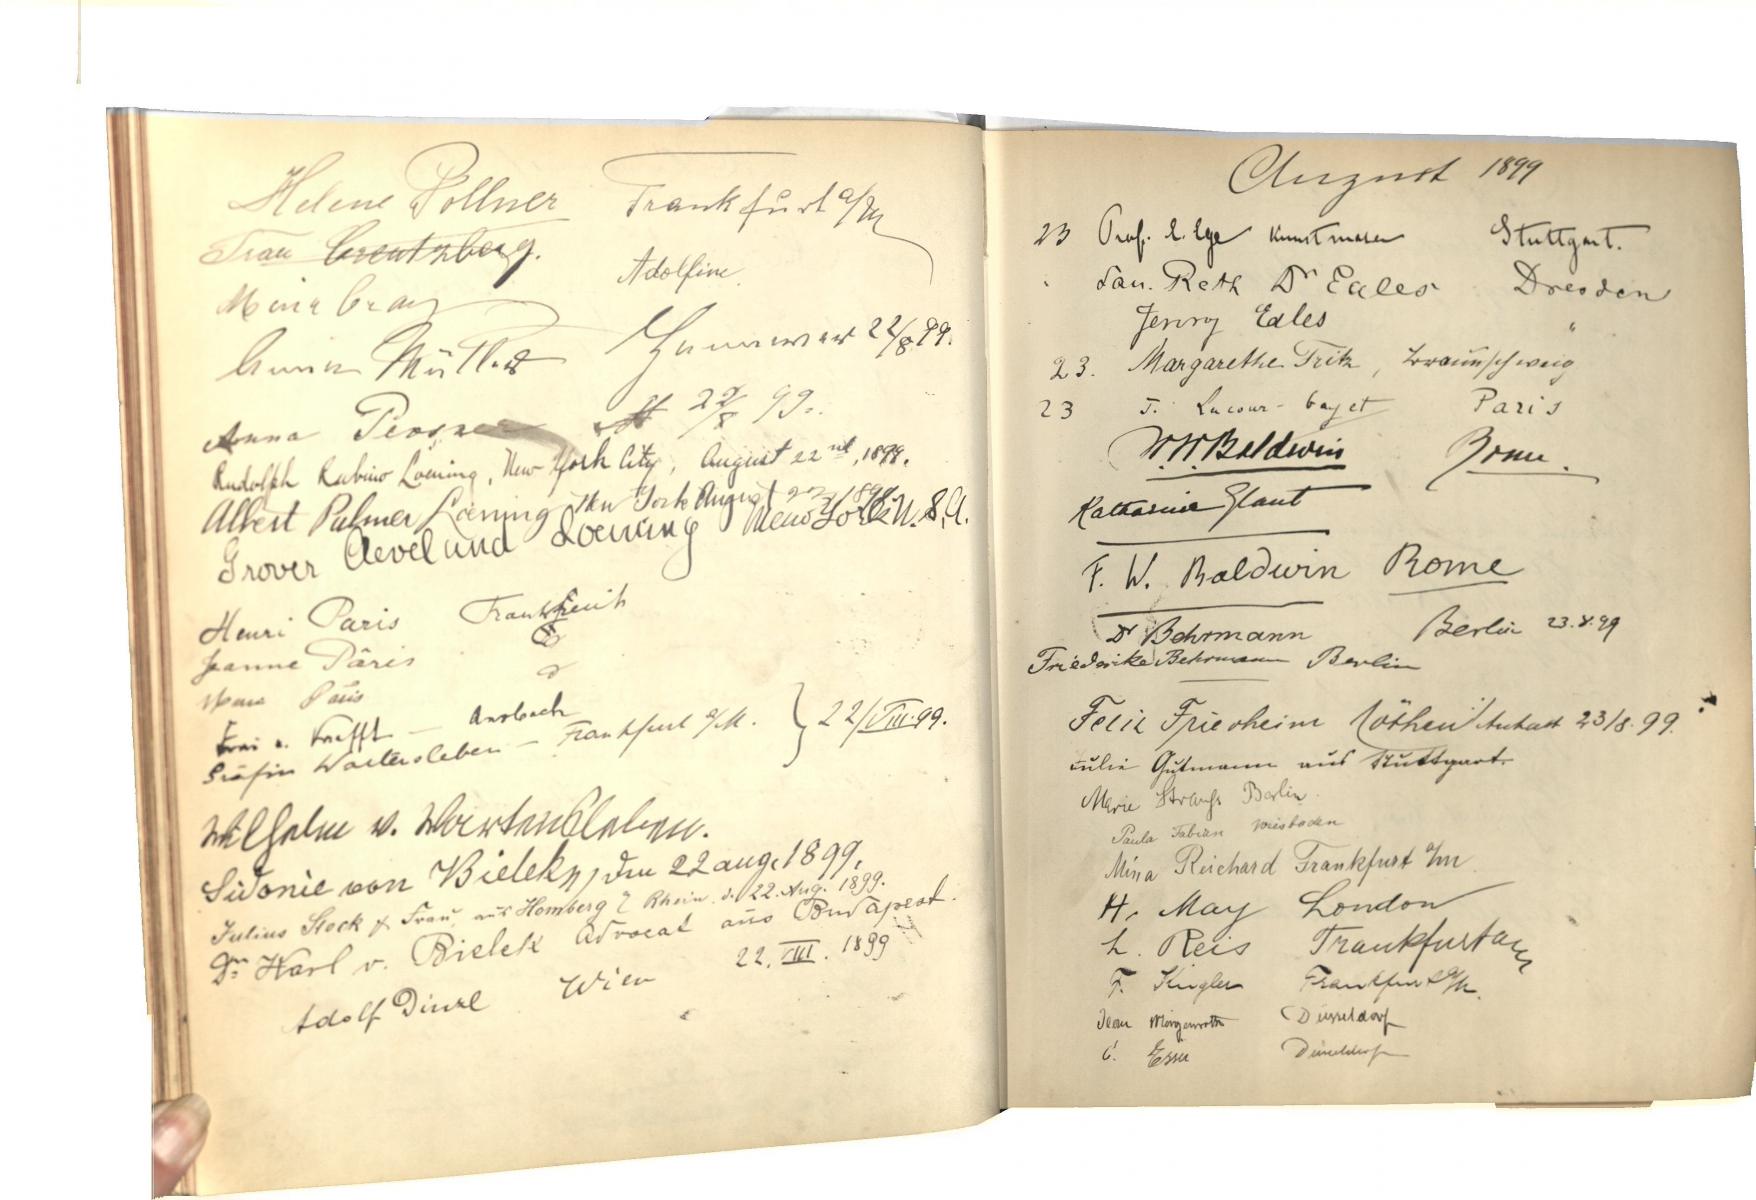 Helene Pollner Frankfurt a/M
Frau Creutzberg.
Adolfine.
Anna 22/8 99.
Rudolph Rubino Loening, New York City, August 22nd, 1899.
Albert Palmer Loening New York August 22 1899
Grover Cleveland Loening New York U.S.A.
Henri Paris Frankreich
Jeanne Pâris
Paris
Ansbach
Gräfin Wartensleben – Frankfurt a/M. } 22/VIII.99.
Wilhelm v. Wartensleben.
Sidonie von Bielek, den 22 aug. 1899.
Julius Stock & Frau, aus Homberg Rhein d. 22. Aug. 1899.
Dr. Karl v. Bielek Advocat aus Budapest.
22. VIII. 1899
Adolf Dinzl Wien
August 1899
23 Prof. Kunstmaler Stuttgart.
San. Rath Dr Eales Dresden
Jenny Eales "
23. Margarethe Fritz, Braunschweig
23 Paris
W.W. Baldwin Rome.
Katharine
F. W. Baldwin Rome
Dr Behrmann Berlin 23.8.99
Friederike Behrmann Berlin
Felix Friedheim Cöthen i/Anhalt 23/8.99.
Julie Gutmann aus Stuttgart.
Marie Strauss Berlin.
Paula Fabian Wiesbaden
Mina Reichard Frankfurt a/m
H. May London
L. Reis Frankfurt am
F. Frankfurt a/M.
Morgenroth Düsseldorf
C. Esser Düsseldorf